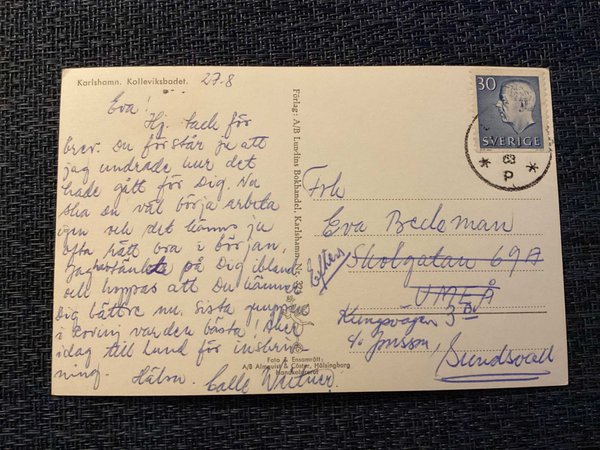 Karlshamn. Kolleviksbadet.
27.8
Eva!
Hj. tack för
brev. Du förstår ju att
jag undrade hur det
hade gått för Dig. Nu
ska du väl börja arbeta
igen och det känns ju
ofta rätt bra i början.
Jag tänkte på Dig ibland
och hoppas att Du känner
Dig bättre nu. Sista gruppen
i var den bästa! Åker
idag till Lund för inskriv-
ning.
Hälsn. Calle
Förlag: A/B Lundins Bokhandel, Karlshamn. Nr.
Foto & Ensamrätt:
A/B Almquist & Cöster, Hälsingborg
Handkolorerat
30
SVERIGE
63
P
Frk
Eva Bedeman
Skolgatan 69A
UMEÅ
Efters.
Kungsvägen 3
c/o Jonsson,
Sundsvall